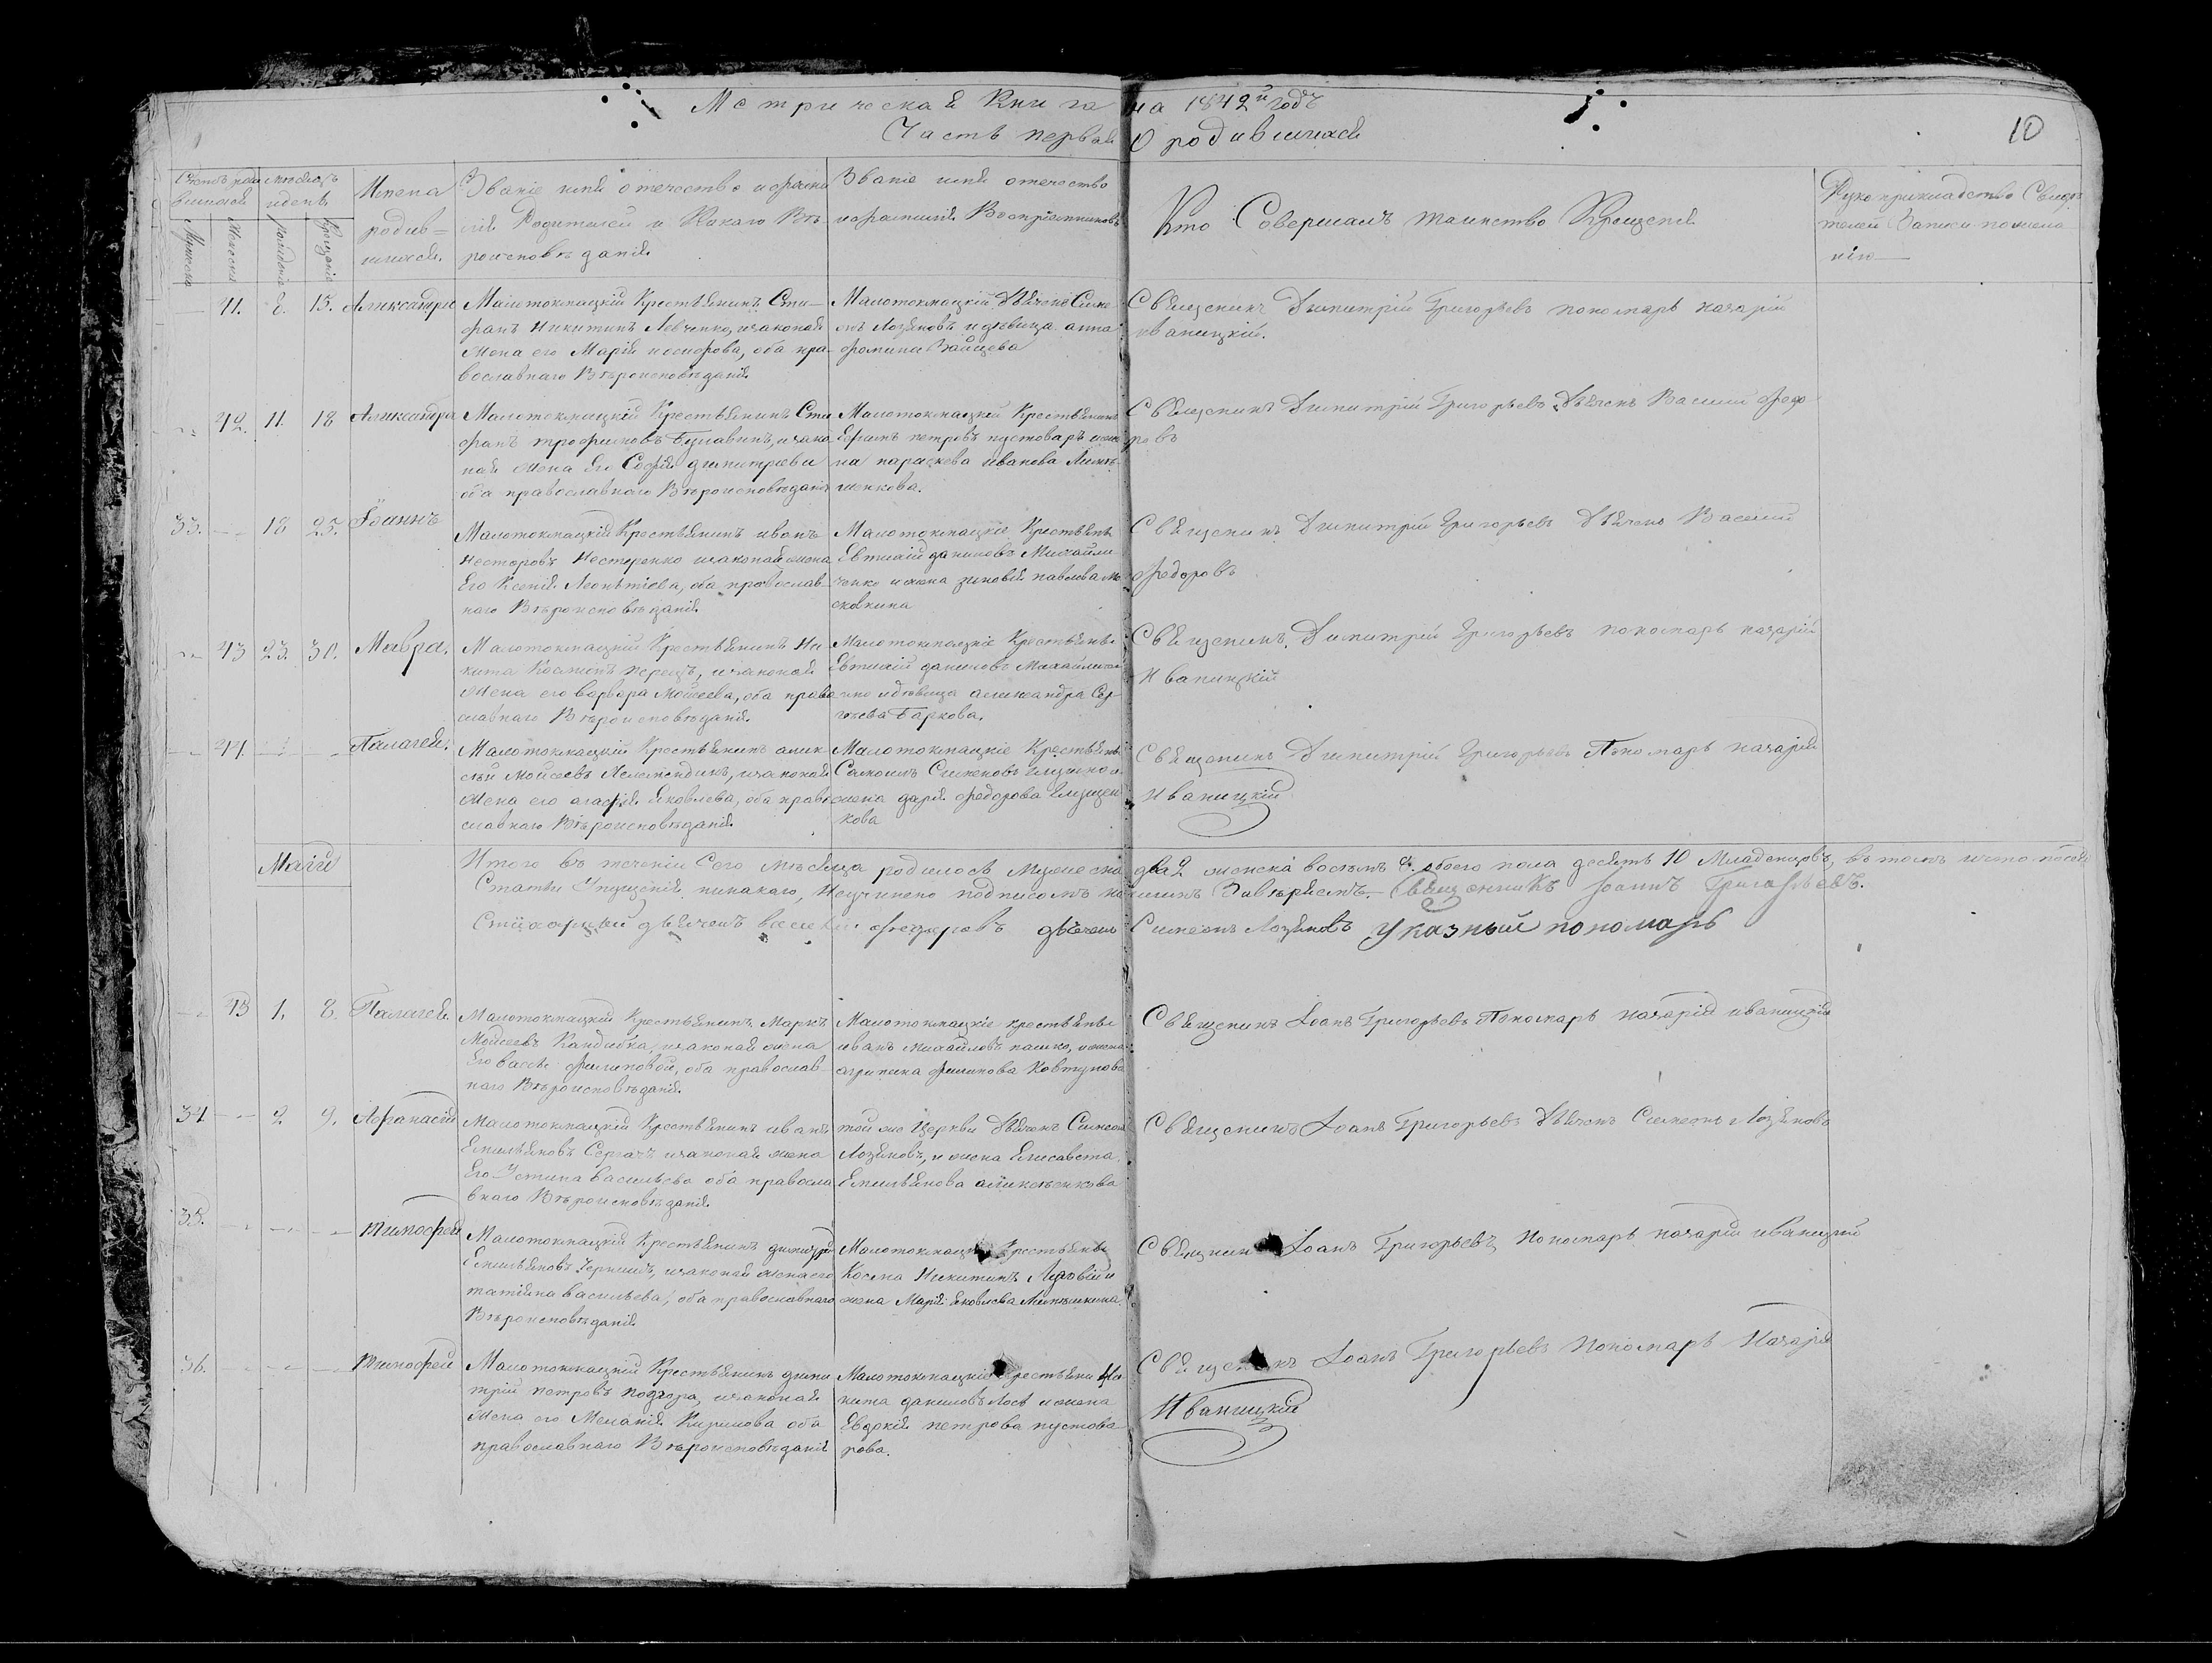 Метрическая Книга на 1842й годъ
Часть первая О родившихся
10
Счетъ родившихся
Мужеска
Женска
мѣсяцъ и день
рожденія
Крещенія
Имена родив=
шихся.
Званіе имя отечество и фамилія
Родителей и Какаго Вѣ
роисповѣданія
Званіе имя отечество
и фамилія Воспріемниковъ
Кто Совершалъ таинство Крещенія
Рукоприкладство Свидѣ
телей Записи по жела
нію
41. 8. 15. Александра
Малотокмацкій Крестьянинъ Сте-
фанъ Никитинъ Левченко, изаконая
жена его Марія иосифова, оба пра-
вославнаго Вѣроисповѣданія
Малотокмацкій дьячекъ Симе-
онъ Лозяновъ и дѣвица анна
фомина Зайцева
Священикъ Димитрій Григорьевъ пономарь назарій
иваницкій.
42. 11. 18 Александра
Малотокмацкій Крестьянинъ Сте
фанъ трофимовъ Булавинъ, изако
ная жена Его Софія димитріева
оба православнаго Вѣроисповѣданія
Малотокмацкій Крестьянинъ
Ефимъ петровъ пустоваръ и же
на параскева иванова
Священикъ Димитрій Григорьевъ Дьячекъ Василій Федо
ровъ
33. 18 25. Іоаннъ
Малотокмацкій Крестьянинъ иванъ
Несторовъ Нестеренко изаконая жена
Его Ксенія Леонтіева, оба православ-
наго Вѣроисповѣданія
Малотокмацкіе Крестьяне
Евтихій даниловъ Михайли
ченко и жена зиновія павлова
Священикъ Димитрій Григорьевъ Дьячекъ Василий
федоровъ
43 23. 30. Мавра.
Малотокмацкій Крестьянинъ Ни
кита Космінъ перецъ, изаконая
жена его варвара Моисеева, оба право
славнаго Вѣроисповѣданія
Малотокмацкіе Крестьяне
Евтихій даниловъ Михайличе
нко и дѣвица александра Сер
гѣева Баркова.
Священикъ Димитрій Григорьевъ пономарь назарій
Иваницкій
44. Палагея.
Малотокмацкій Крестьянинъ алек
сѣй Моисеевъ, изаконая
жена его агафія Яковлева, оба право
славнаго Вѣроисповѣданія
Малотокмацкіе Крестьяне
Самоилъ Симеоновъ и
жена дарія федорова
кова
Священикъ Димитрій Григорьевъ Пономарь назарій
Иваницкій
Итого въ теченіи Сего Мѣсяца родилось Мужеска два 2 женска восемь 8. обоего пола десять 10 Младенцовъ, въ томъ что по сей
Статьи Упущенія никакаго, Неучинено подписомъ нашимъ Завѣряемъ. Священникъ Іоаннъ Григорьевъ.
дьячекъ василій федоровъ дьячекъ Симеонъ Лозяновъ Указный пономарь
Маій
45 1. 8. Палагея
Малотокмацкій Крестьянинъ Маркъ
Моисеевъ Кандибка, изаконая жена
Его васса филиповой, оба православ-
наго Вѣроисповѣданія
Малотокмацкіе крестьяне
иванъ Михайловъ пашко, и жена
агрипина филипова Ковтунова
Священикъ Іоанъ Григорьевъ Пономарь назарій иваницкій
34 2 9. Афанасій
Малотокмацкій Крестьянинъ иванъ
Емильяновъ Сергачъ изаконая жена
Его Устина васильева оба правосла
внаго Вѣроисповѣданія
той же Церкви Дьячекъ Симеонъ
Лозяновъ, и жена Елисавета
Емильянова алексѣенкова
Священикъ Іоанъ Григорьевъ Дьячекъ Симеонъ Лозяновъ
35. тимофей
Малотокмацкій Крестьянинъ димитрій
Емильяновъ Чернишъ, изаконая жена его
татіяна васильева, оба православнаго
Вѣроисповѣданія
Малотокмацкіе Крестьяне
Косма Никитинъ и
жена Марія Яковлева
Священикъ Іоанъ Григорьевъ, Пономарь назарій иваницкій
36. тимофей
Малотокмацкій Крестьянинъ дими
трій петровъ подгора, изаконая
жена его Меланія Кирилова оба
православнаго Вѣроисповѣданія
Малотокмацкіе Крестьяни Ни
кита даниловъ Лось и жена
Евдокія петрова пустова
рова.
Священикъ Іоанъ Григорьевъ Пономарь Назарій
Иваницкій